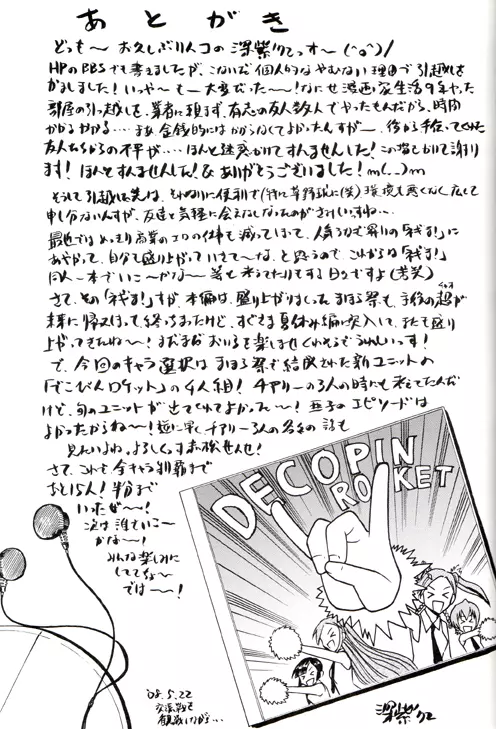 あとがき
どっも〜お久しぶりんコの深紫クビっす〜(^o^)/
HPのBBSでも書きましたが、こないだ個人的なやむない理由で引越しを
かましました!いっや〜もー大変だった〜!なにせ漫画家生活9年やった
部屋の引っ越しを、業者に頼まず、有志の友人数人でやったもんだから、時間
かかるかかる…まぁ金銭的にはかからなくてよかったんすが〜、後から手伝ってくれた
友人たちからの不平が…ほんと迷惑かけてすんませんした!この場でかけて謝り
ます!ほんとすんませんした!&ありがとうございました!m(__)m
そうして引越し先は、それなりに便利で(特に草野球に(笑)環境も悪くなく広して
申し分ないんすが、友達と気軽に会えなくなったのがさみしいすね…
最近ではめっきり商業のエロの仕事も減ってしまって、人気うなぎ昇りの「ネギま!」に
あやかって、自分も盛り上がっていきて〜な、と思うので、これからは「ネギま!」
同人一本でいこ〜かな〜等と考えてたりもする日々ですよ(苦笑)
さて、その「ネギま!」すが、本編は、盛り上がりました まほら祭も、予役の超が
未来に帰ってしまって終っちまったけど、すぐさま夏休み編に突入して、またも盛り
上がってきたね〜!まだまだおいらを楽しませてくれそうでうれしいっす!
で、今回のキャラ選択は まほら祭で結成された新ユニットの
「でこぴんロケット」の4人組!チアリーの3人の時にも考えてたんだ
けど、旬のユニットが出てくれてよかって〜!亜子のエピソードは
よかったからね〜!逆に早くチアリー3人の各々の話も
見たいよね。よろしくっす赤松せんせ!
さて、これで全キャラ制覇まで
あと15人!半分まで
いったぜ〜!
次は誰でいこ〜
かな〜!
みんな楽しみに
しててな〜
では〜!
DECOPIN
ROCKET
'08.5.22
交流戦を
観戦しながら…
深紫クビ